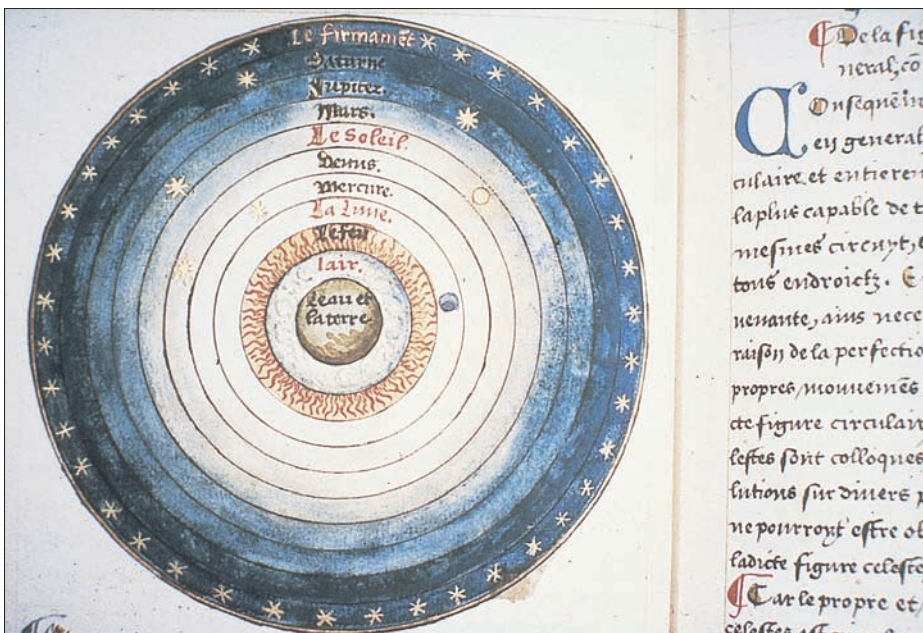 Le firmamēt
Saturne
Jupiter.
Mars.
Le Soleil.
Venus.
Mercure.
La Lune.
Le feu
lair.
Leau et
laterre.
De la fig
neral, cō
Consequēm
en generat
culaire, et entierem
la plus capable de t
mesmes circuyt,
tous endroictz. E
uenante, ains nece
raison de la perfectio
propres mouuemēs
cte figure circulair
lestes sont colloques
lutions sur divers
ne pourroyt estre ob
ladicte figure celeste
Car le propre et